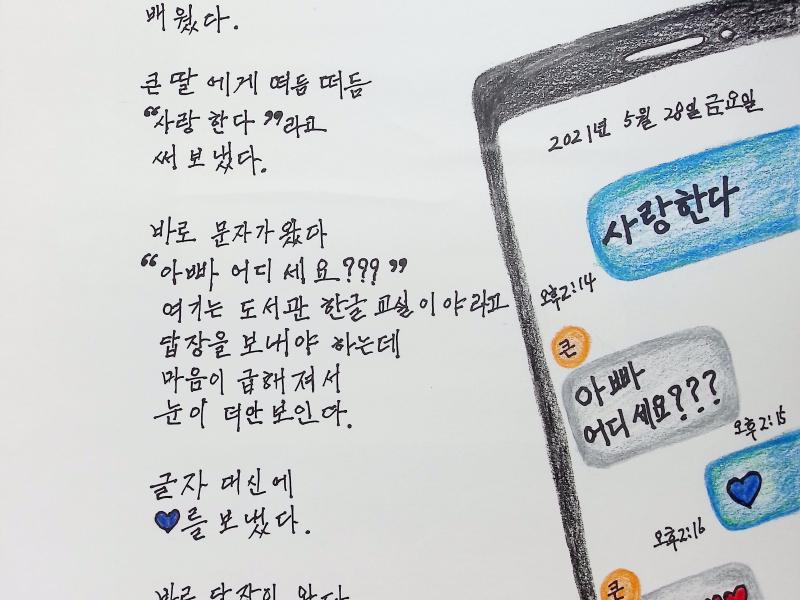 배웠다.
큰 딸에게 떠듬 떠듬
“사랑 한다”라고
써 보냈다.
바로 문자가 왔다
“아빠 어디 세요???”
여기는 도서관 한글 교실이야라고
답장을 보내야 하는데
마음이 급해져서
눈이 더안보인다.
글자 대신에
💙를 보냈다.
바로 답장이 왔다
2021년 5월 28일 금요일
사랑한다
오후2:14
큰
아빠
어디세요???
오후2:15
💙
오후2:16
큰